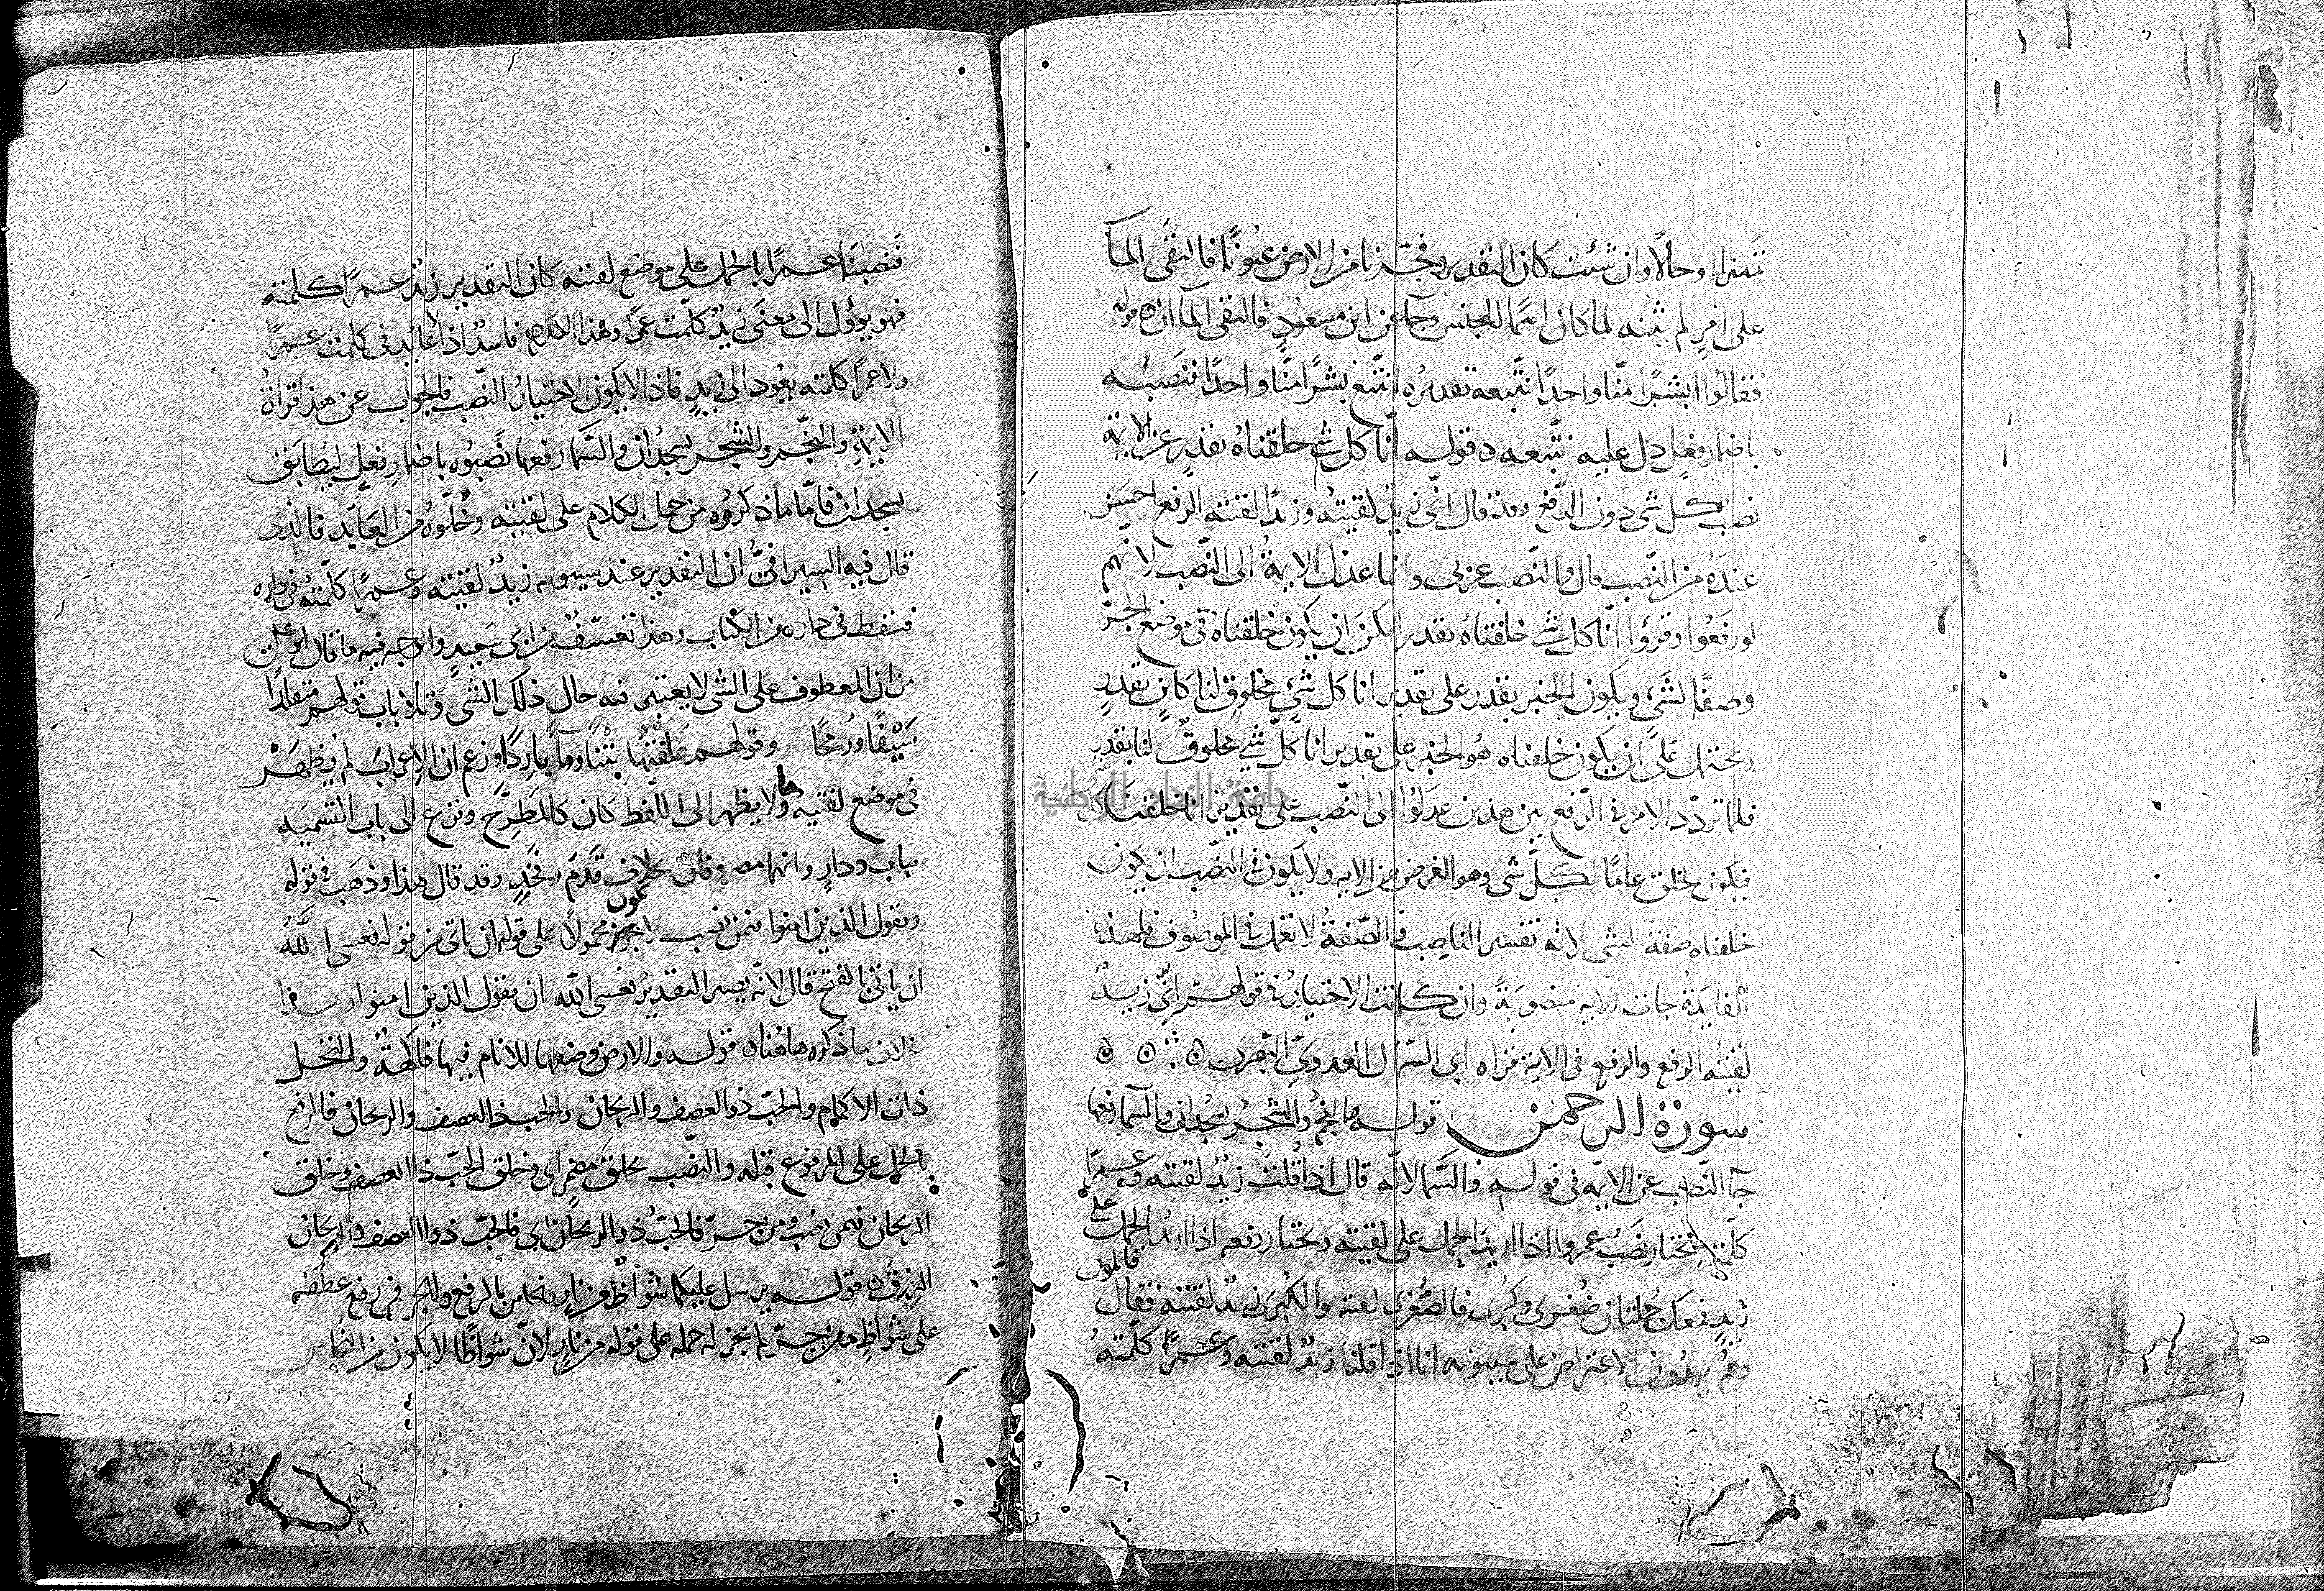 تمييزا او حالا وان شئت كان التقدير وفجرنا من الارض عيونا فالتقى المآ
على امر لم يثنه لما كان اسما للجنس وجآ عن ابن مسعود فالتقى المآان ٥ قوله
فقالوا ابشرا منّا واحدا نتّبعه تقديره انتّبع بشرًا منّا واحدًا فنصبه
باضمار فعل دل عليه نتّبعه ٥ قوله انّا كل شي خلقناه بقدر عن الاية
نصب كل شى دون الرّفع وقد قال انّى زيد لقيته وزيدًا لقيته الرفع احسن
عنده من النصب قال والنّصب عربى وانما عدل الاية الى النّصب لانهم
لو رفعوا وقرؤا انّا كل شى خلقناه بقدر امكن ان يكون خلقناه فى موضع الجرّ
وصفًا لشىء ويكون الخبر بقدر على تقدير انا كل شىء مخلوق لنا كاين بقدر
ويحتمل على ان يكون خلقناه هو الخبر على تقدير انا كلّ شىء مخلوق لنا بقدر
فلما تردّد الامر فى الرّفع بين هذين عدلوا الى النّصب على تقدير انا خلقنا كل شى
فيكون الخلق عامًا لكلّ شى وهو الغرض من الايه ولا يكون فى النّصب ان يكون
خلقناه صفة لشى لانه تفسير الناصب والصّفة لا تعمل فى الموصوف فلهذه
الفايدة جات الايه منصوبة وان كانت الاختيار فى قولهم انّى زيد
لقيته الرفع والرفع فى الاية قراه ابى السّمّال العدوىّ البصرى ٥ ٥ ٥
سورة الرحمن قوله والنجم والشجر يسجدان والسما رفعها
جآ النّصب عن الايه فى قوله والسّما لانّه قال اذا قلت زيد لقيته وعمرًا
كلّمته تختار نصب عمرو اذا اريد الحمل على لقيته وتختار رفعه اذا اريد الحمل على
زيد فمعك جملتان صُغرى وكُبرى فالصّغرى لقيته والكبرى زيد لقيته فقال قائلون
وهم يريدون الاعتراض على سيبويه انا اذا قلنا زيد لقيته وعمرًا كلّمته
فنصبنا عمرًا بالحمل على موضع لقيته كان التقدير زيد عمرًا كلمته
فهو يؤول الى معنى زيد كلّمت عمرًا وهذا الكلام فاسد اذ لا عايد فى كلمت عمرًا
ولا عمرًا كلمته يعود الى زيد فاذا لا يكون الاختيار النّصب فالجواب عن هذا قراة
الايمّة والنّجم والشجر يسجدان والسّما رفعها نصبوه باضمار فعل ليطابق
يسجدان فامّا ما ذكروه من حمل الكلام على لقيته وخلوّه من العايد فالّذى
قال فيه السيرافىّ ان التقدير عند سيبويه زيد لقيته وعمرًا كلّمته فى داره
فسقط فى داره من الكتاب وهذا تعسّف من ابى سعيد والوجه فيه ما قال ابو على
من ان المعطوف على الشى لا يعتبر فيه حال ذلك الشى وتلا باب قولهم متقلدًا
سيفًا ورمحًا وقولهم علفتها تبنًا ومآً باردًا وزعم ان الاعراب لم يظهر
فى موضع لقيته وما لا يظهر الى اللّفظ كان كالمطّرح ونزع الى باب التسميه
بباب ودار وانهما مصروفان بخلاف قدم وفخذ وقد قال هذا وذهب فى قوله
ويقول الذين امنوا فمن نصب لا يجوز كون محمولاً على قوله ان ياتى من قوله فعسى اللّٰه
ان ياتى بالفتح قال لانّه يصير التقدير فعسى اللّه ان يقول الذين امنوا وهذا
خلاف ما ذكره هاهنا ٥ قوله والارض وضعها للانام فيها فاكهة والنخل
ذات الاكمام والحبّ ذو العصف والريحان والحب ذا العصف والريحان فالرفع
بالحمل على المرفوع قبله والنصب بخلق مضمر اى وخلق الحبّ ذا العصف وخلق
الريحان فيمن نصب ومن جرّ فالحبّ ذو الريحان اى فالحبّ ذو العصف والريحان
الرزق ٥ قوله يرسل عليكما شواظ من نار ونحاس بالرفع والجر فمن رفع عطفه
على شواظ ومن جرّ لم يجز له حمله على قوله من نار لانّ شواظًا لا يكون من النحاس